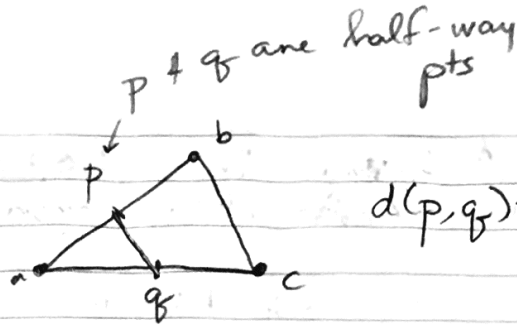 p & q are half-way
pts
b
p
d(p,q)
a
c
q